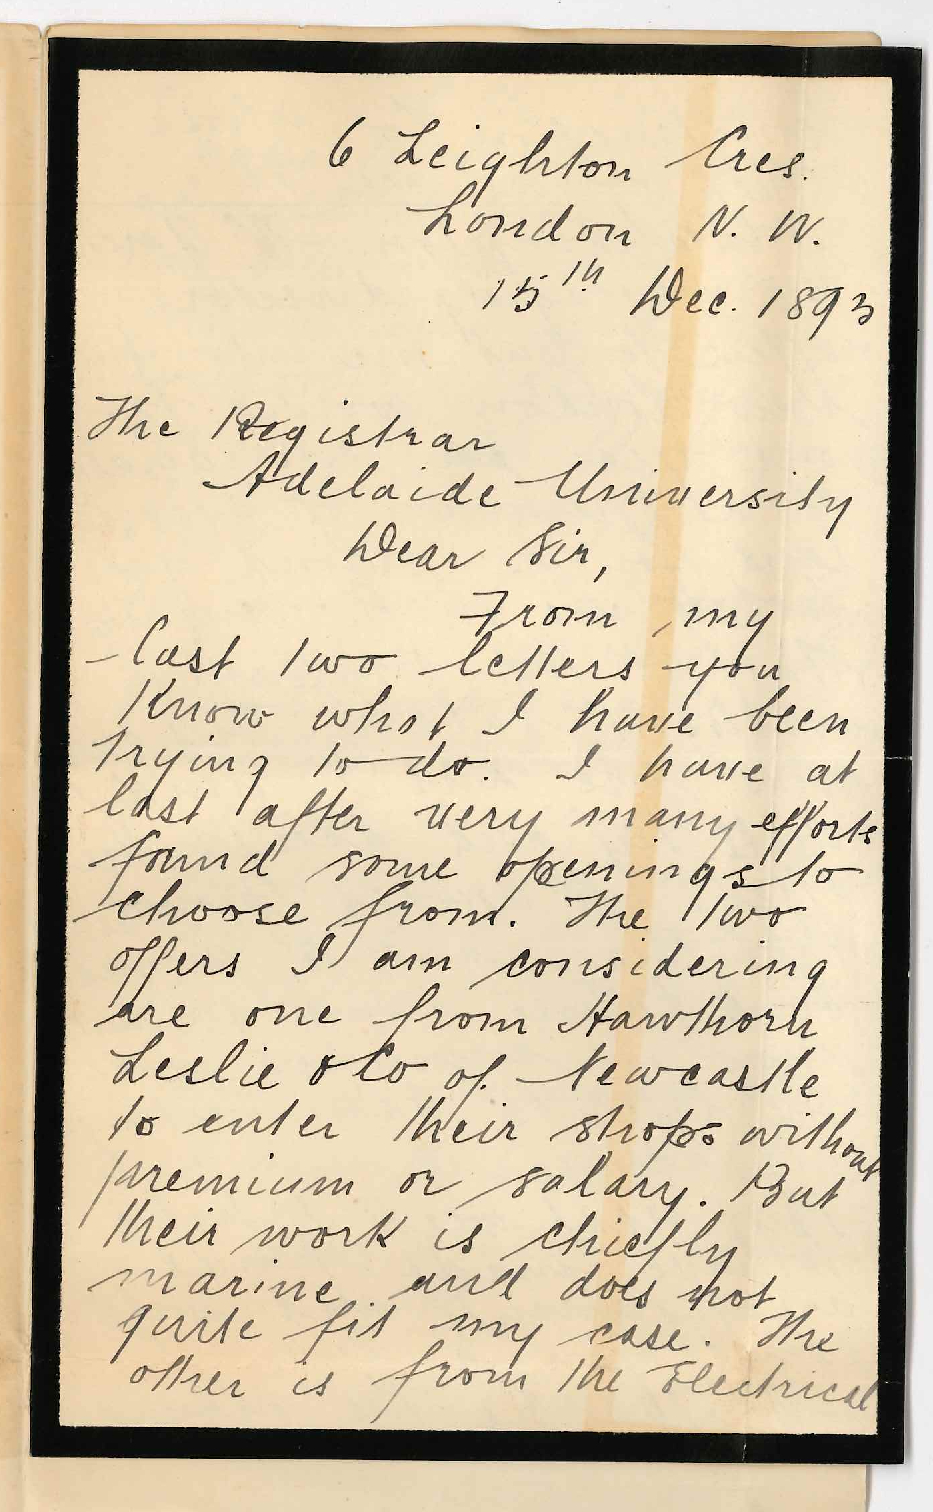 6 Leighton Cres.
London N. W.
15th Dec. 1893
The Registrar
Adelaide University
Dear Sir,
From my
last two letters you
know what I have been
trying to do. I have at
last after very many efforts
found some openings to
choose from. The two
offers I am considering
are one from Hawthorn
Leslie & Co of Newcastle
to enter their shops without
premium or salary. But
their work is chiefly
marine and does not
quite fit my case. The
other is from the Electrical